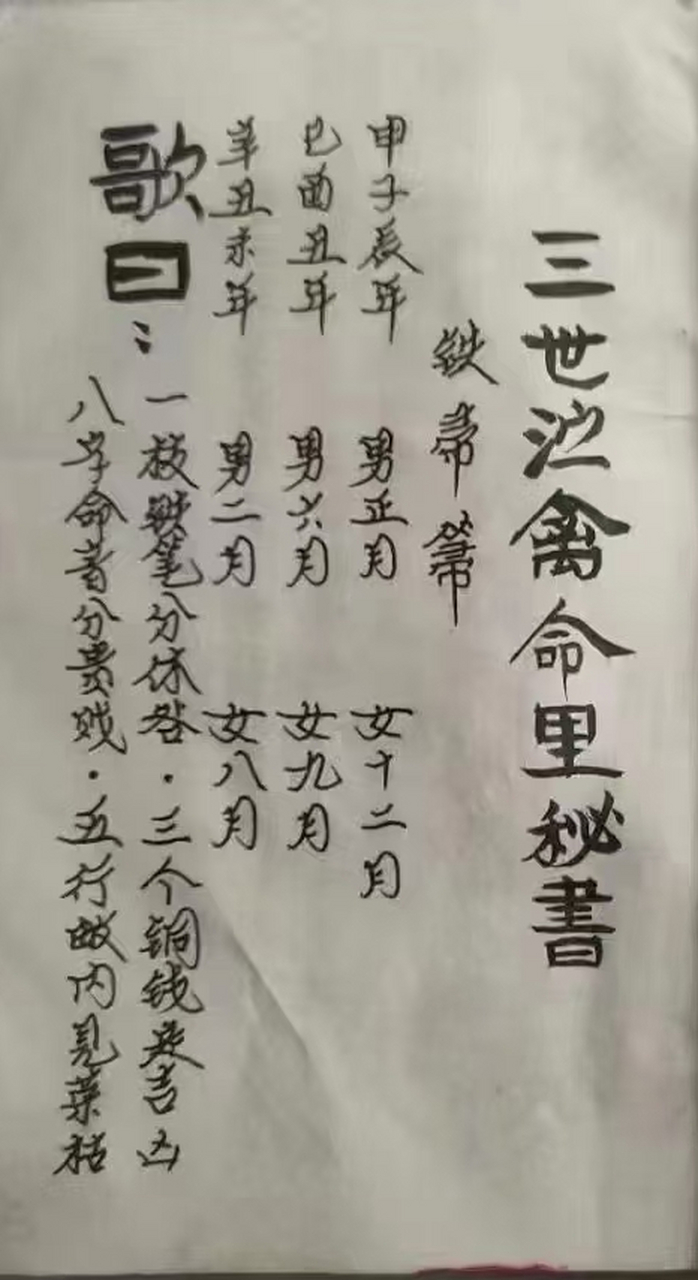 三世泟禽命里秘書
铁帚箒
甲子辰年 男正月 女十二月
巳酉丑年 男六月 女九月
辛丑未年 男二月 女八月
歌曰：
一枝铁笔分休咎·三个铜钱定吉凶
八字命者分贵贱·五行敀内見荣枯